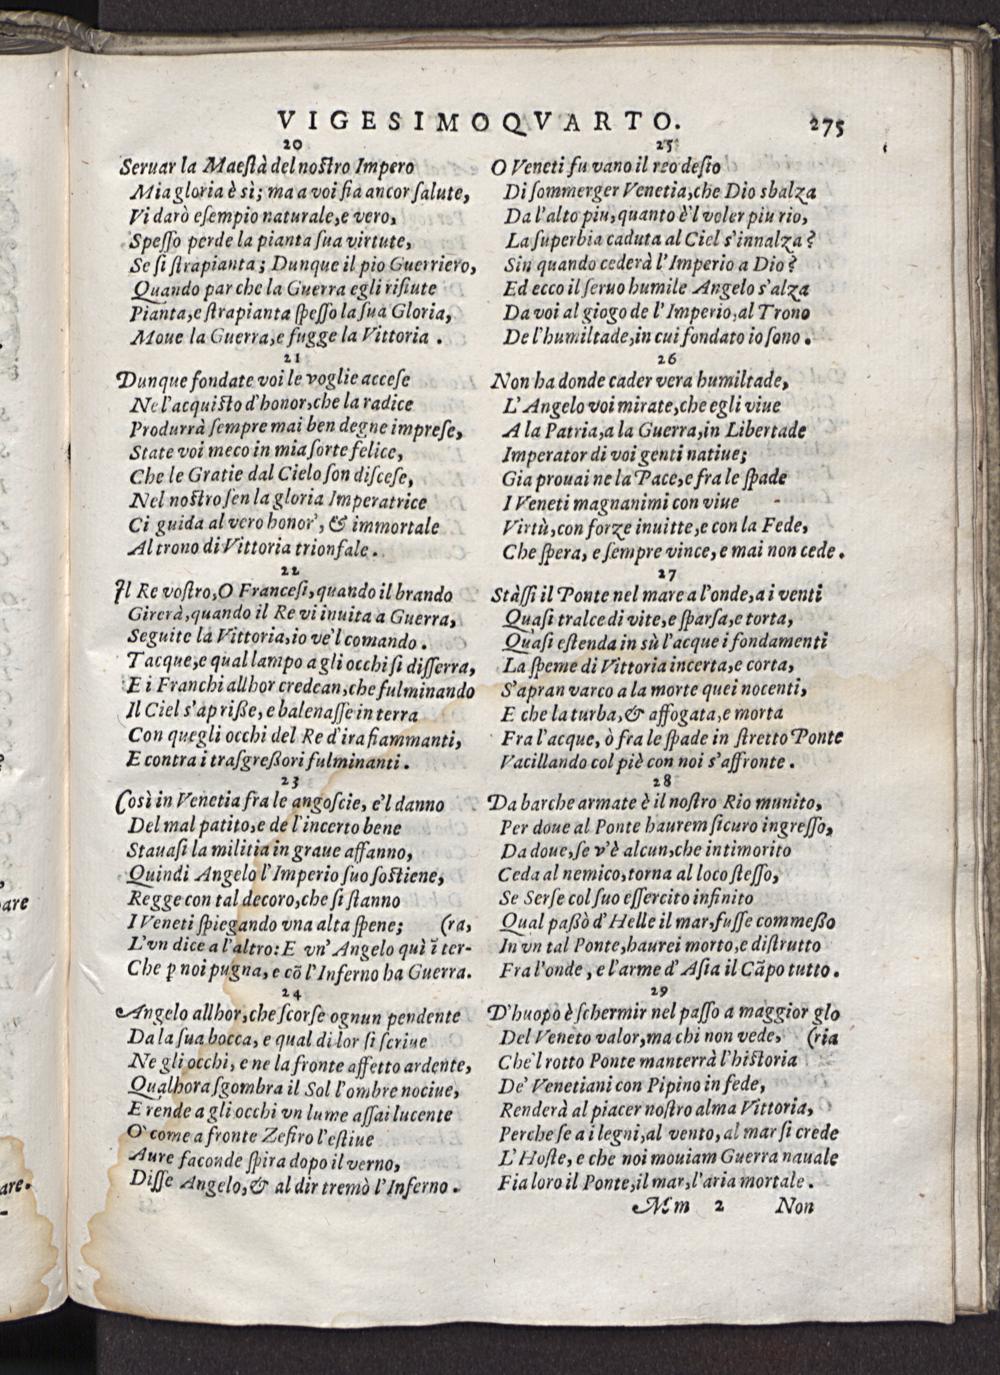 VIGESIMOQVARTO. 275
20
Seruar la Maestà del nostro Impero
Mia gloria è sì; ma a voi sia ancor salute,
Vi darò esempio naturale, e vero,
Spesso perde la pianta sua virtute,
Se si strapianta; Dunque il pio Guerriero,
Quando par che la Guerra egli rifiute
Pianta, e strapianta spesso la sua Gloria,
Moue la Guerra, e fugge la Vittoria.
21
Dunque fondate voi le voglie accese
Ne l'acquisto d'honor, che la radice
Produrrà sempre mai ben degne imprese,
State voi meco in mia sorte felice,
Che le Gratie dal Cielo son discese,
Nel nostro sen la gloria Imperatrice
Ci guida al vero honor', & immortale
Al trono di Vittoria trionfale.
22
Il Re vostro, O Francesi, quando il brando
Girerà, quando il Re vi inuita a Guerra,
Seguite la Vittoria, io ve'l comando.
Tacque, e qual lampo a gli occhi si disserra,
E i Franchi allhor credean, che fulminando
Il Ciel s'aprisse, e balenasse in terra
Con quegli occhi del Re d'ira fiammanti,
E contra i trasgressori fulminanti.
23
Così in Venetia fra le angoscie, e'l danno
Del mal patito, e de l'incerto bene
Stauasi la militia in graue affanno,
Quindi Angelo l'Imperio suo sostiene,
Regge con tal decoro, che si stanno
I Veneti spiegando vna alta spene; (ra,
L'vn dice a l'altro: E vn' Angelo quì ĩ ter-
Che ꝑ noi pugna, e cõ l'Inferno ha Guerra.
24
Angelo allhor, che scorse ognun pendente
Da la sua bocca, e qual di lor si scriue
Ne gli occhi, e ne la fronte affetto ardente,
Qualhora sgombra il Sol l'ombre nociue,
E rende a gli occhi vn lume assai lucente
O' come a fronte Zefiro l'estiue
Aure faconde spira dopo il verno,
Disse Angelo, & al dir tremò l'Inferno.
25
O Veneti fu vano il reo desio
Di sommerger Venetia, che Dio sbalza
Da l'alto piu, quanto è'l voler piu rio,
La superbia caduta al Ciel s'innalza?
Sin quando cederà l'Imperio a Dio?
Ed ecco il seruo humile Angelo s'alza
Da voi al giogo de l'Imperio, al Trono
De l'humiltade, in cui fondato io sono.
26
Non ha donde cader vera humiltade,
L'Angelo voi mirate, che egli viue
A la Patria, a la Guerra, in Libertade
Imperator di voi genti natiue;
Gia prouai ne la Pace, e fra le spade
I Veneti magnanimi con viue
Virtù, con forze inuitte, e con la Fede,
Che spera, e sempre vince, e mai non cede.
27
Stàssi il Ponte nel mare a l'onde, a i venti
Quasi tralce di vite, e sparsa, e torta,
Quasi estenda in sù l'acque i fondamenti
La speme di Vittoria incerta, e corta,
S'apran varco a la morte quei nocenti,
E che la turba, & affogata, e morta
Fra l'acque, ò fra le spade in stretto Ponte
Vacillando col piè con noi s'affronte.
28
Da barche armate è il nostro Rio munito,
Per doue al Ponte haurem sicuro ingresso,
Da doue, se v'è alcun, che intimorito
Ceda al nemico, torna al loco stesso,
Se Serse col suo essercito infinito
Qual passò d'Helle il mar, fusse commesso
In vn tal Ponte, haurei morto, e distrutto
Fra l'onde, e l'arme d'Asia il Cãpo tutto.
29
D'huopo è schermir nel passo a maggior glo
Del Veneto valor, ma chi non vede, (ria
Che'l rotto Ponte manterrà l'historia
De' Venetiani con Pipino in fede,
Renderà al piacer nostro alma Vittoria,
Perche se a i legni, al vento, al mar si crede
L'Hoste, e che noi mouiam Guerra nauale
Fia loro il Ponte, il mar, l'aria mortale.
Mm 2 Non
are
are.